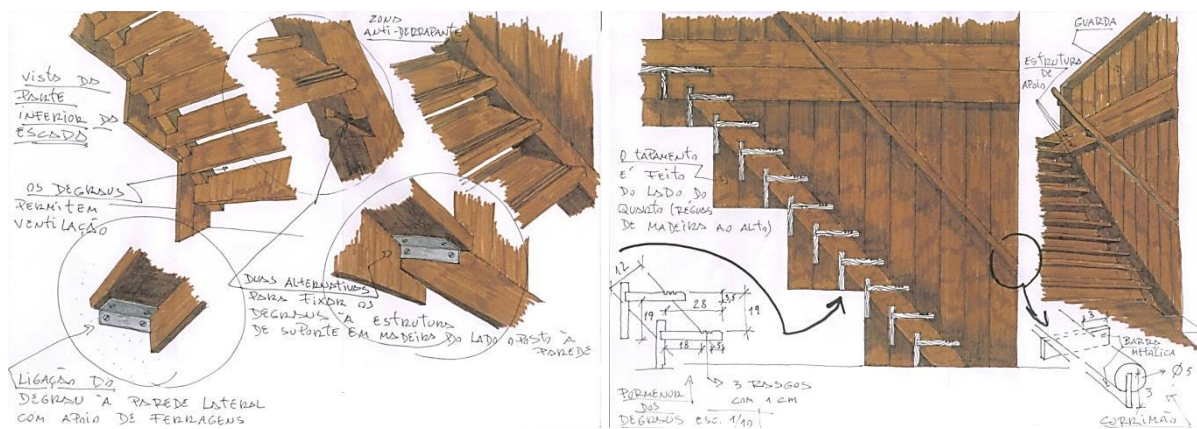 VISTA DA
PARTE
INFERIOR DA
ESCADA
OS DEGRAUS
PERMITEM
VENTILAÇÃO
ZONA
ANTI-DERRAPANTE
DUAS ALTERNATIVAS
PARA FIXAR OS
DEGRAUS À ESTRUTURA
DE SUPORTE EM MADEIRA DO LADO OPOSTO À
PAREDE
LIGAÇÃO DO
DEGRAU À PAREDE LATERAL
COM APOIO DE FERRAGENS
GUARDA
ESTRUTURA
DE
APOIO
O TAPAMENTO
É FEITO
DO LADO DO
QUARTO (RÉGUAS
DE MADEIRA AO ALTO)
12
28
3,5
19
19
18
5
3 RASGOS
COM 1 CM
PORMENOR
DOS
DEGRAUS ESC. 1/10
3
BARRA
METÁLICA
Ø5
3
CORRIMÃO